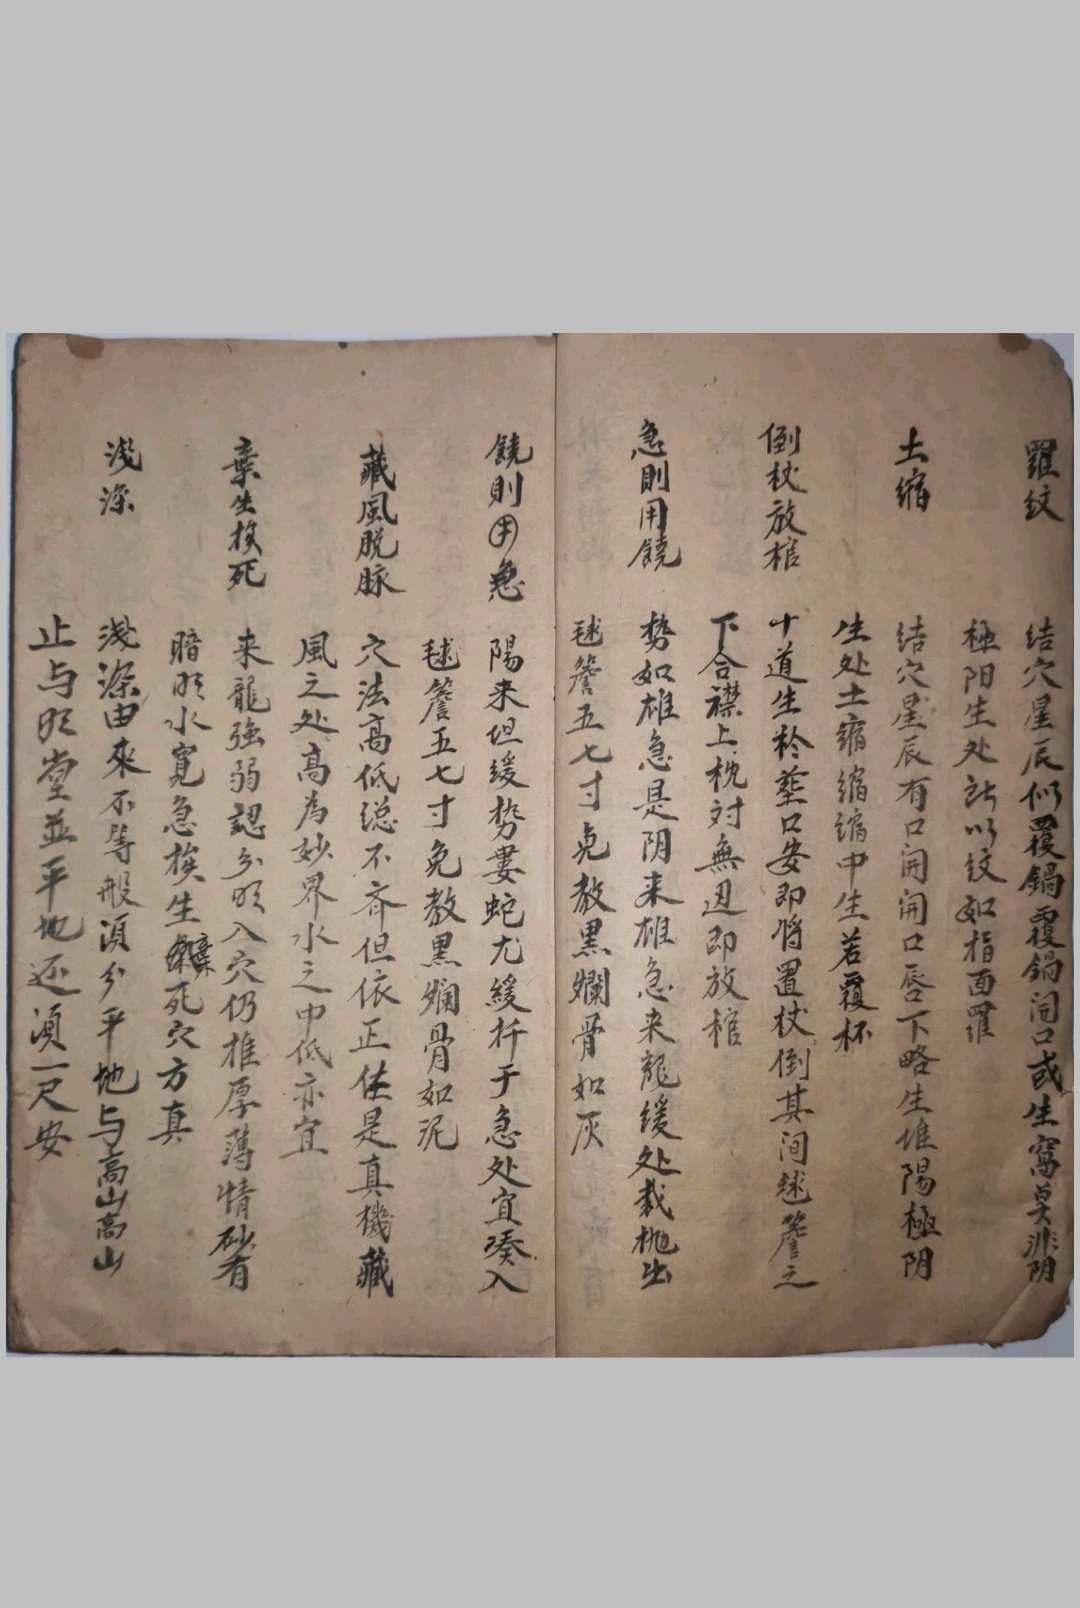 羅紋
结穴星辰似覆鍋覆鍋闹口或生窩莫非阴
極阳生处計以纹如指面羅
土縮
结穴星辰有口開開口唇下略生堆陽極阴
生处土縮縮縮中生若覆杯
倒杖放棺
十道生於塟口安即将置杖倒其间毬簷之
下合襟上枕対無迯即放棺
急則用饒
势如雄急是阴来雄急来龍緩处裁抛出
毬簷五七寸免教黑爛骨如灰
饒則用急
陽来但緩势要蛇尤緩扦于急处宜凑入
毬簷五七寸免教黑爛骨如泥
藏風脱脉
穴法高低総不齐但依正体是真機藏
風之处高為妙界水之中低亦宜
棄生挨死
来龍強弱認分明入穴仍推厚薄情砂有
暗明水寛急挨生棄死穴方真
浅深
浅深由來不等般須分平地与高山高山
止与明堂並平地还須一尺安